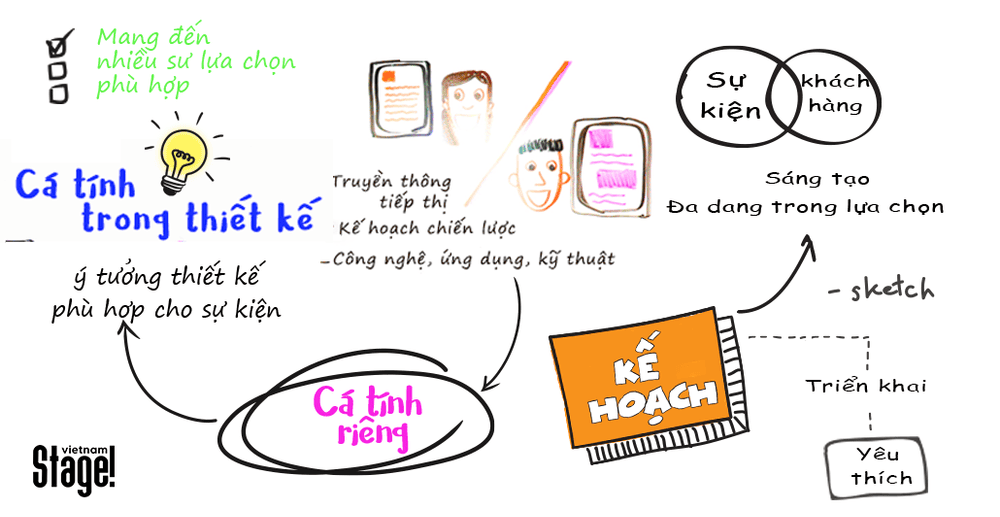 Mang đến
nhiều sư lựa chọn
phù hợp
Cá tính
trong thiết kế
ý tưởng thiết kế
phù hợp cho sự kiện
Truyền thông
tiếp thị
Kế hoạch chiến lược
-Công nghệ, ứng dụng, kỹ thuật
Cá tính
riêng
Sự
kiện
khách
hàng
Sáng tạo
Đa dang trong lựa chọn
- sketch
KẾ
HOẠCH
Triển khai
Yêu
thích
vietnam
Stage!